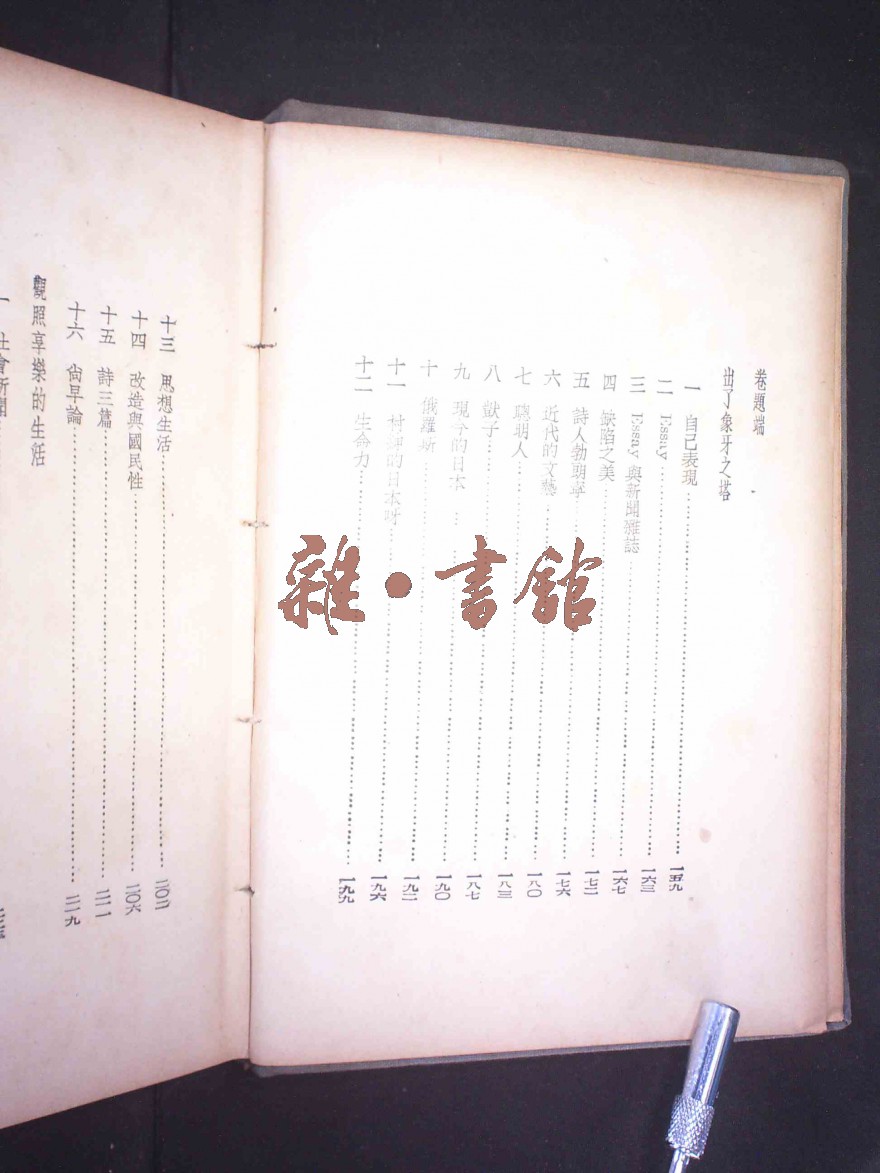 卷題端
出了象牙之塔
一 自己表現……一五九
二 Essay……一六三
三 Essay 與新聞雜誌……一六七
四 缺陷之美……一七二
五 詩人勃朗寧……一七六
六 近代的文藝……一八〇
七 聰明人……一八三
八 獃子……一八七
九 現今的日本……一九〇
十 俄羅斯……一九二
十一 村紳的日本呀……一九六
十二 生命力……一九九
十三 思想生活……二〇二
十四 改造與國民性……二〇六
十五 詩三篇……二一一
十六 尙早論……二一九
觀照享樂的生活
一 社會新聞……
雜·書館